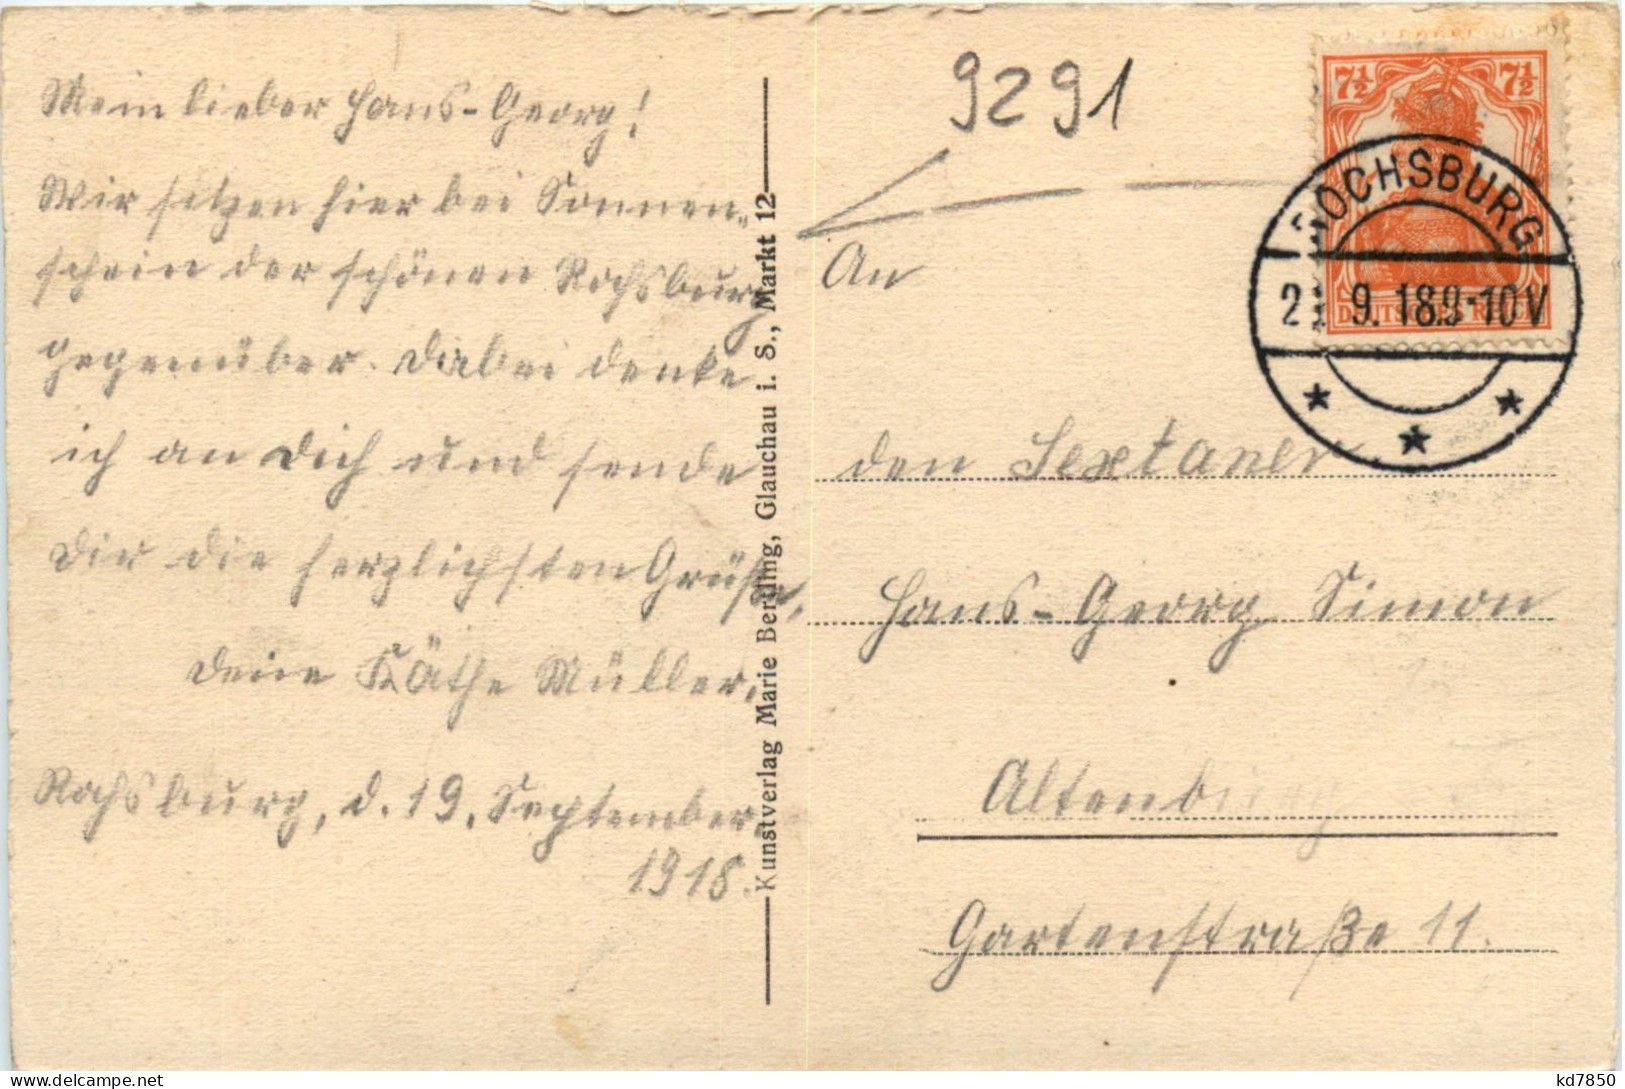 Mein lieber Hans-Georg!
Wir sitzen hier bei Sonnen-
schein der schönen Rochsburg
gegenüber. Dabei denke
ich an Dich und sende
Dir die herzlichsten Grüße,
Deine Käthe Müller.
Rochsburg, d. 19. September
1918.
Kunstverlag Marie Bertling, Glauchau i. S., Markt 12
9291
7½ 7½
DEUTSCHES REICH
ROCHSBURG
9. 18 9-10 V
An
den Sextaner
Hans-Georg Simon
Altenburg
Gartenstraße 11.
kd7850